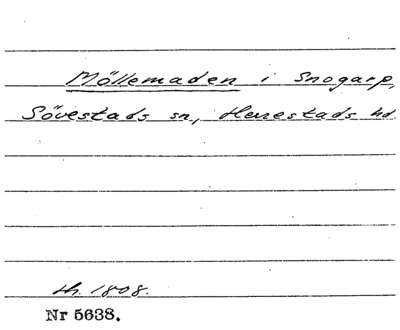 Möllemaden i Snogarp,
Sövestads sn, Herrestads hd.
th. 1808.
Nr 5638.